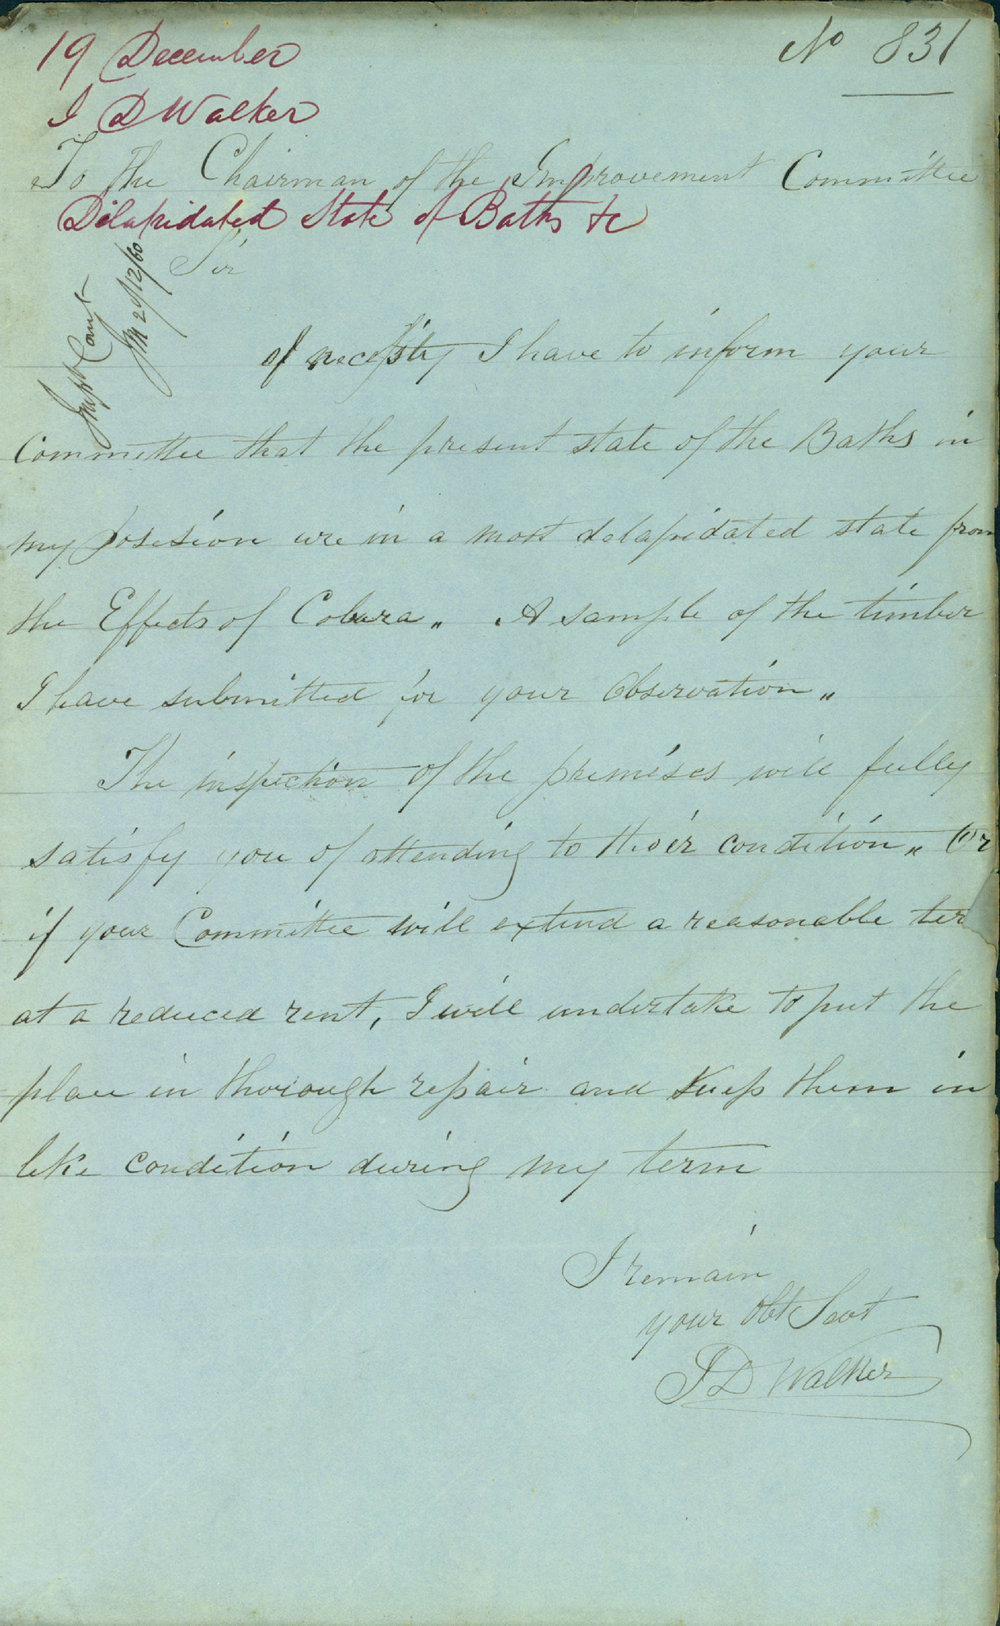 19 December
No 831
I D Walker
To the Chairman of the Improvement Committee
Dilapidated State of Baths &c
Sir
Impt Com
21/12/60
Of necessity I have to inform your
Committee that the present state of the Baths in
my posesion are in a most delapidated state from
the Effects of Cobara„ A sample of the timber
I have submitted for your Observation„
The inspection of the premises will fully
satisfy you of attending to their condition„ Or
if your Committee will extend a reasonable ter
at a reduced rent, I will undertake to put the
place in thorough repair and Keep them in
like condition during my term
I remain
your Obt Servt
J D Walker